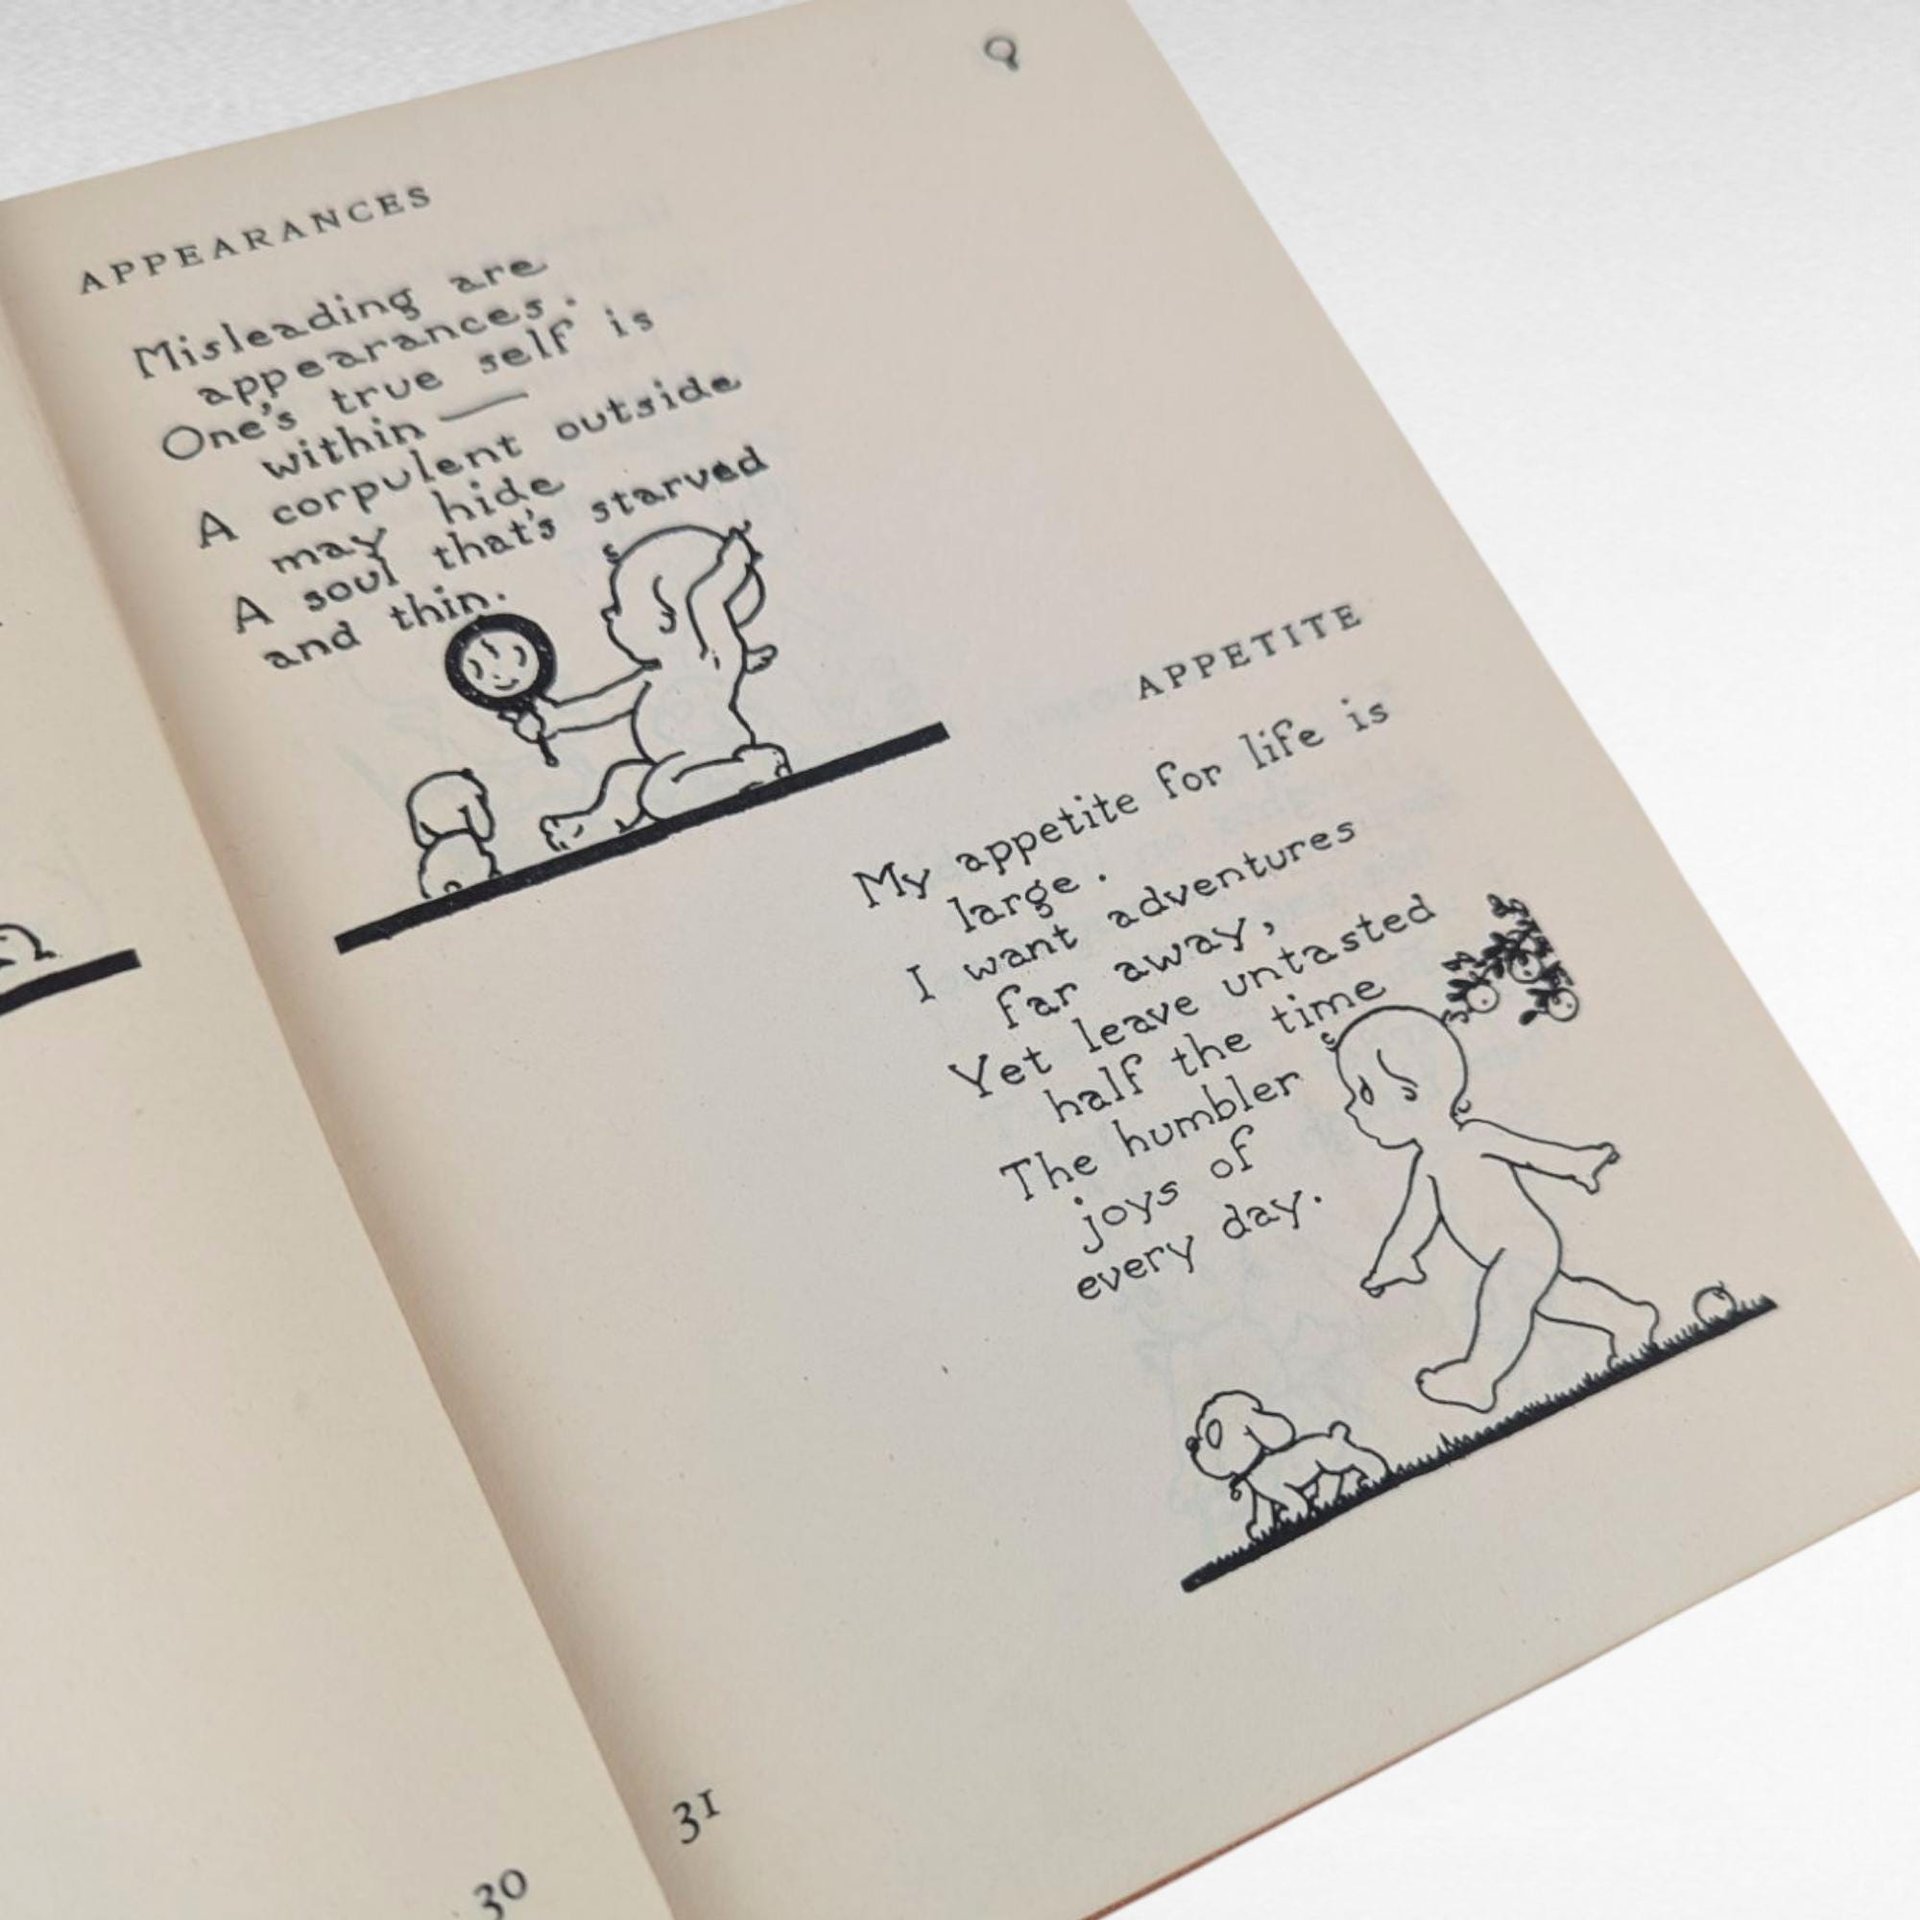 APPEARANCES
Misleading are
appearances.
One's true self is
within —
A corpulent outside
may hide
A soul that's starved
and thin.
APPETITE
My appetite for life is
large.
I want adventures
far away,
Yet leave untasted
half the time
The humbler
joys of
every day.
31
30